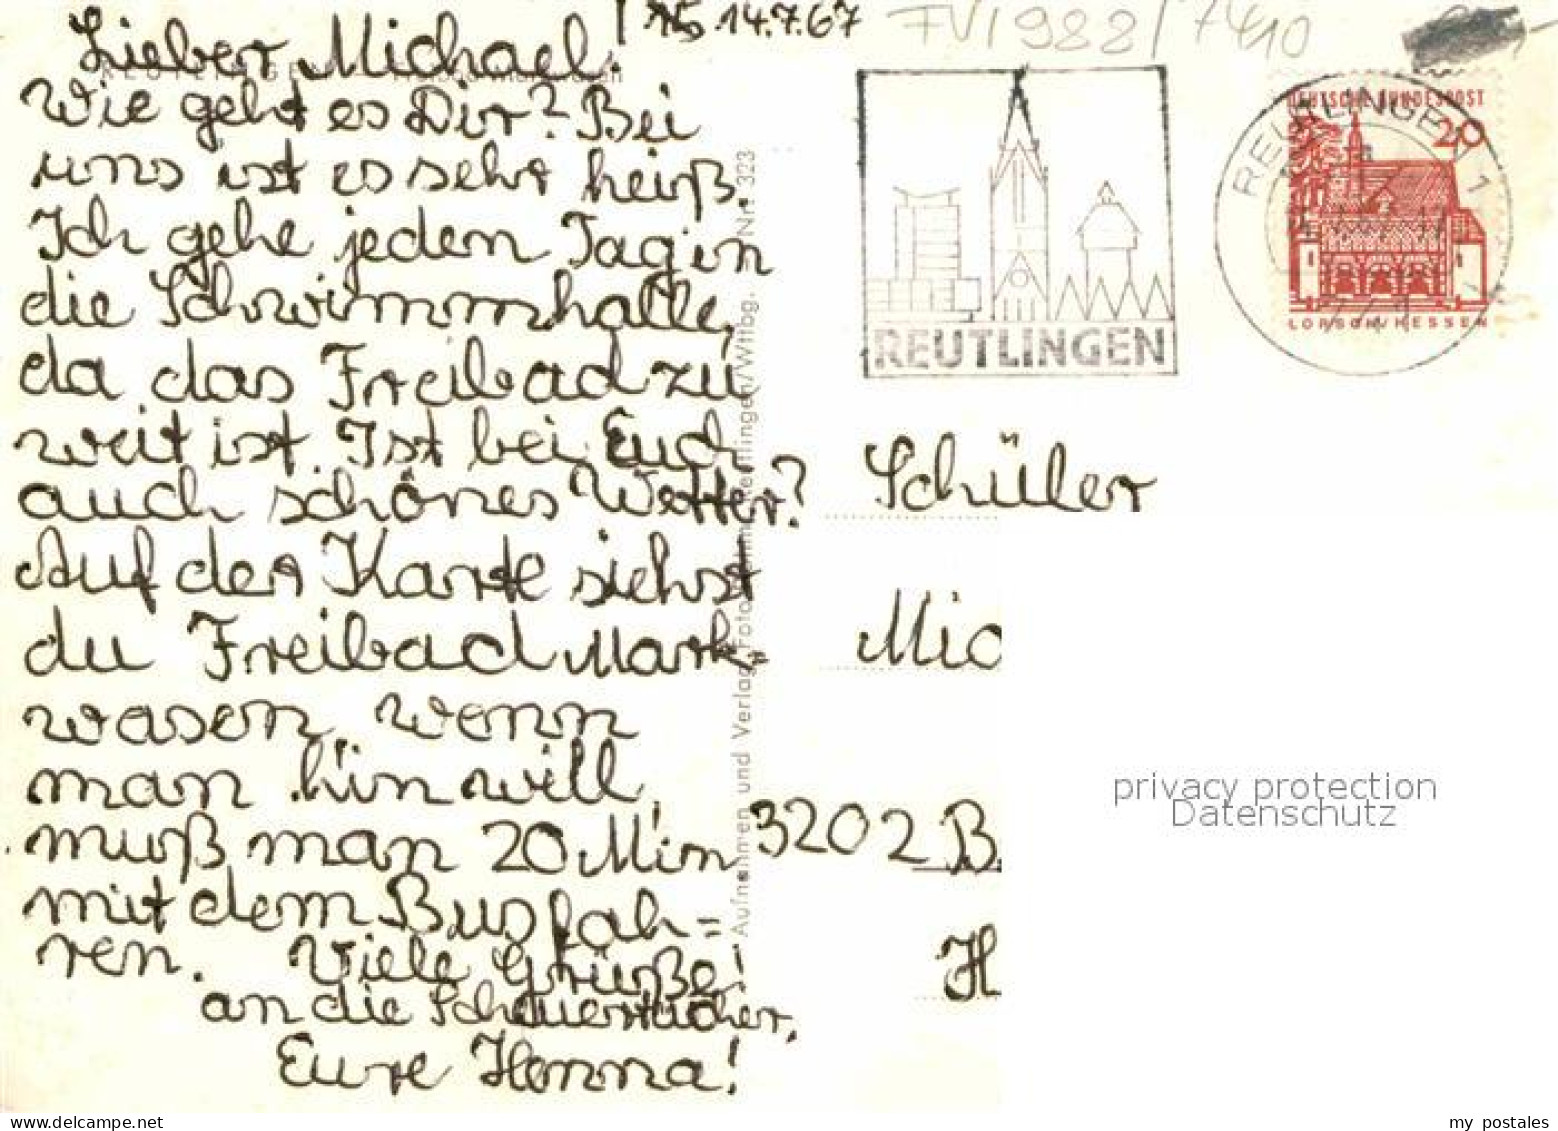 14.7.67
Lieber Michael!
Wie geht es Dir? Bei
uns ist es sehr heiß.
Ich gehe jeden Tag in
die Schwimmhalle,
da das Freibad zu
weit ist. Ist bei Euch
auch schönes Wetter?
Auf der Karte siehst
du Freibad Mark,,
wasen, wenn
man hin will,
muß man 20 Min
mit dem Bus fah=
ren. Viele Grüße!
an die
Eure Hanna!
REUTLINGEN
Aufnahmen und Verlag: Foto
Reutlingen/Wttbg. Nr. 323
FV 1988/7410
REUTLINGEN
REUTLINGEN 1
DEUTSCHE BUNDESPOST
20
LORSCH/HESSEN
Schüler
Mic
3202 B
H
privacy protection
Datenschutz
my postales